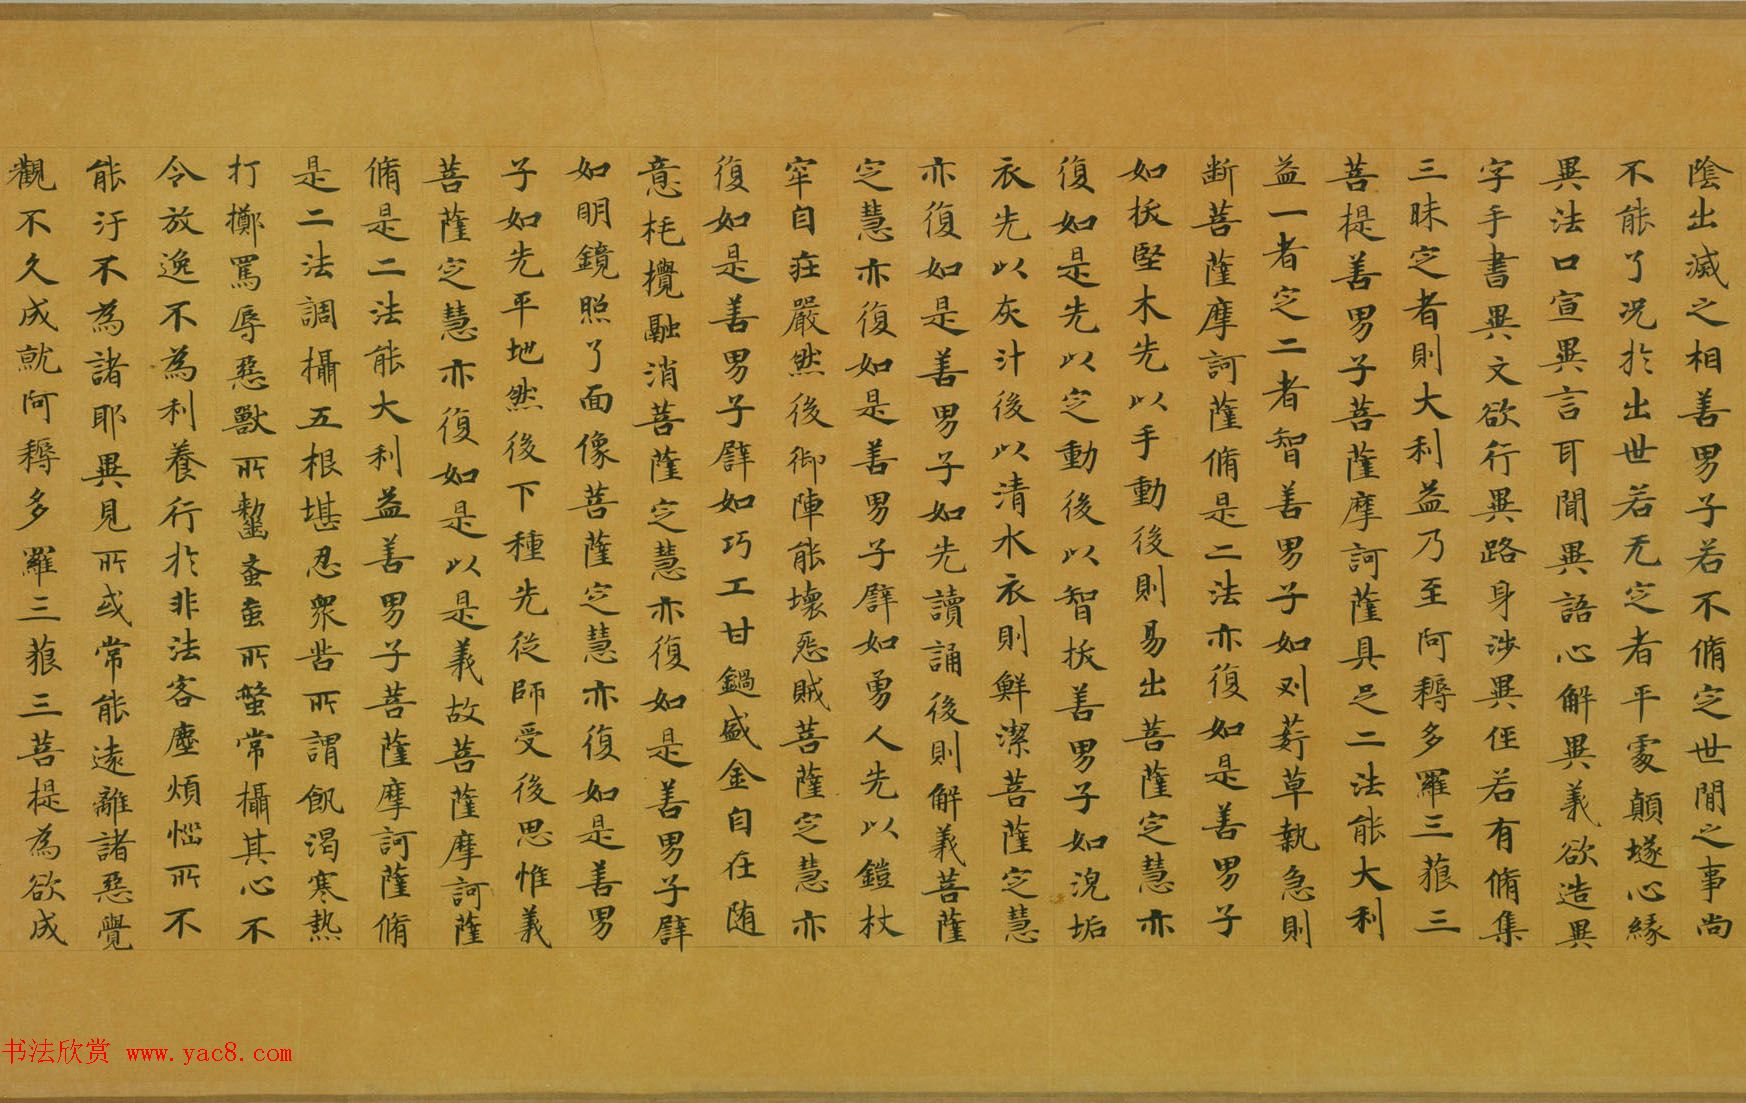 陰出滅之相善男子若不脩定世間之事尚
不能了況於出世若无定者平處顛墜心緣
異法口宣異言耳聞異語心解異義欲造異
字手書異文欲行異路身涉異徑若有脩集
三昧定者則大利益乃至阿耨多羅三藐三
菩提善男子菩薩摩訶薩具足二法能大利
益一者定二者智善男子如刈菥草執急則
断菩薩摩訶薩脩是二法亦復如是善男子
如拔堅木先以手動後則易出菩薩定慧亦
復如是先以定動後以智拔善男子如浣垢
衣先以灰汁後以清水衣則鮮潔菩薩定慧
亦復如是善男子如先讀誦後則解義菩薩
定慧亦復如是善男子譬如勇人先以鎧杖
牢自莊嚴然後御陣能壞惡賊菩薩定慧亦
復如是善男子譬如巧工甘鍋盛金自在随
意秏攪融消菩薩定慧亦復如是善男子譬
如明鏡照了面像菩薩定慧亦復如是善男
子如先平地然後下種先從師受後思惟義
菩薩定慧亦復如是以是義故菩薩摩訶薩
脩是二法能大利益善男子菩薩摩訶薩脩
是二法調攝五根堪忍眾苦所謂飢渴寒熱
打擲罵辱惡獸所齧蚤䖟所螫常攝其心不
令放逸不為利養行於非法客塵煩惱所不
能汙不為諸耶異見所或常能遠離諸惡覺
觀不久成就阿耨多羅三藐三菩提為欲成
书法欣赏 www.yac8.com